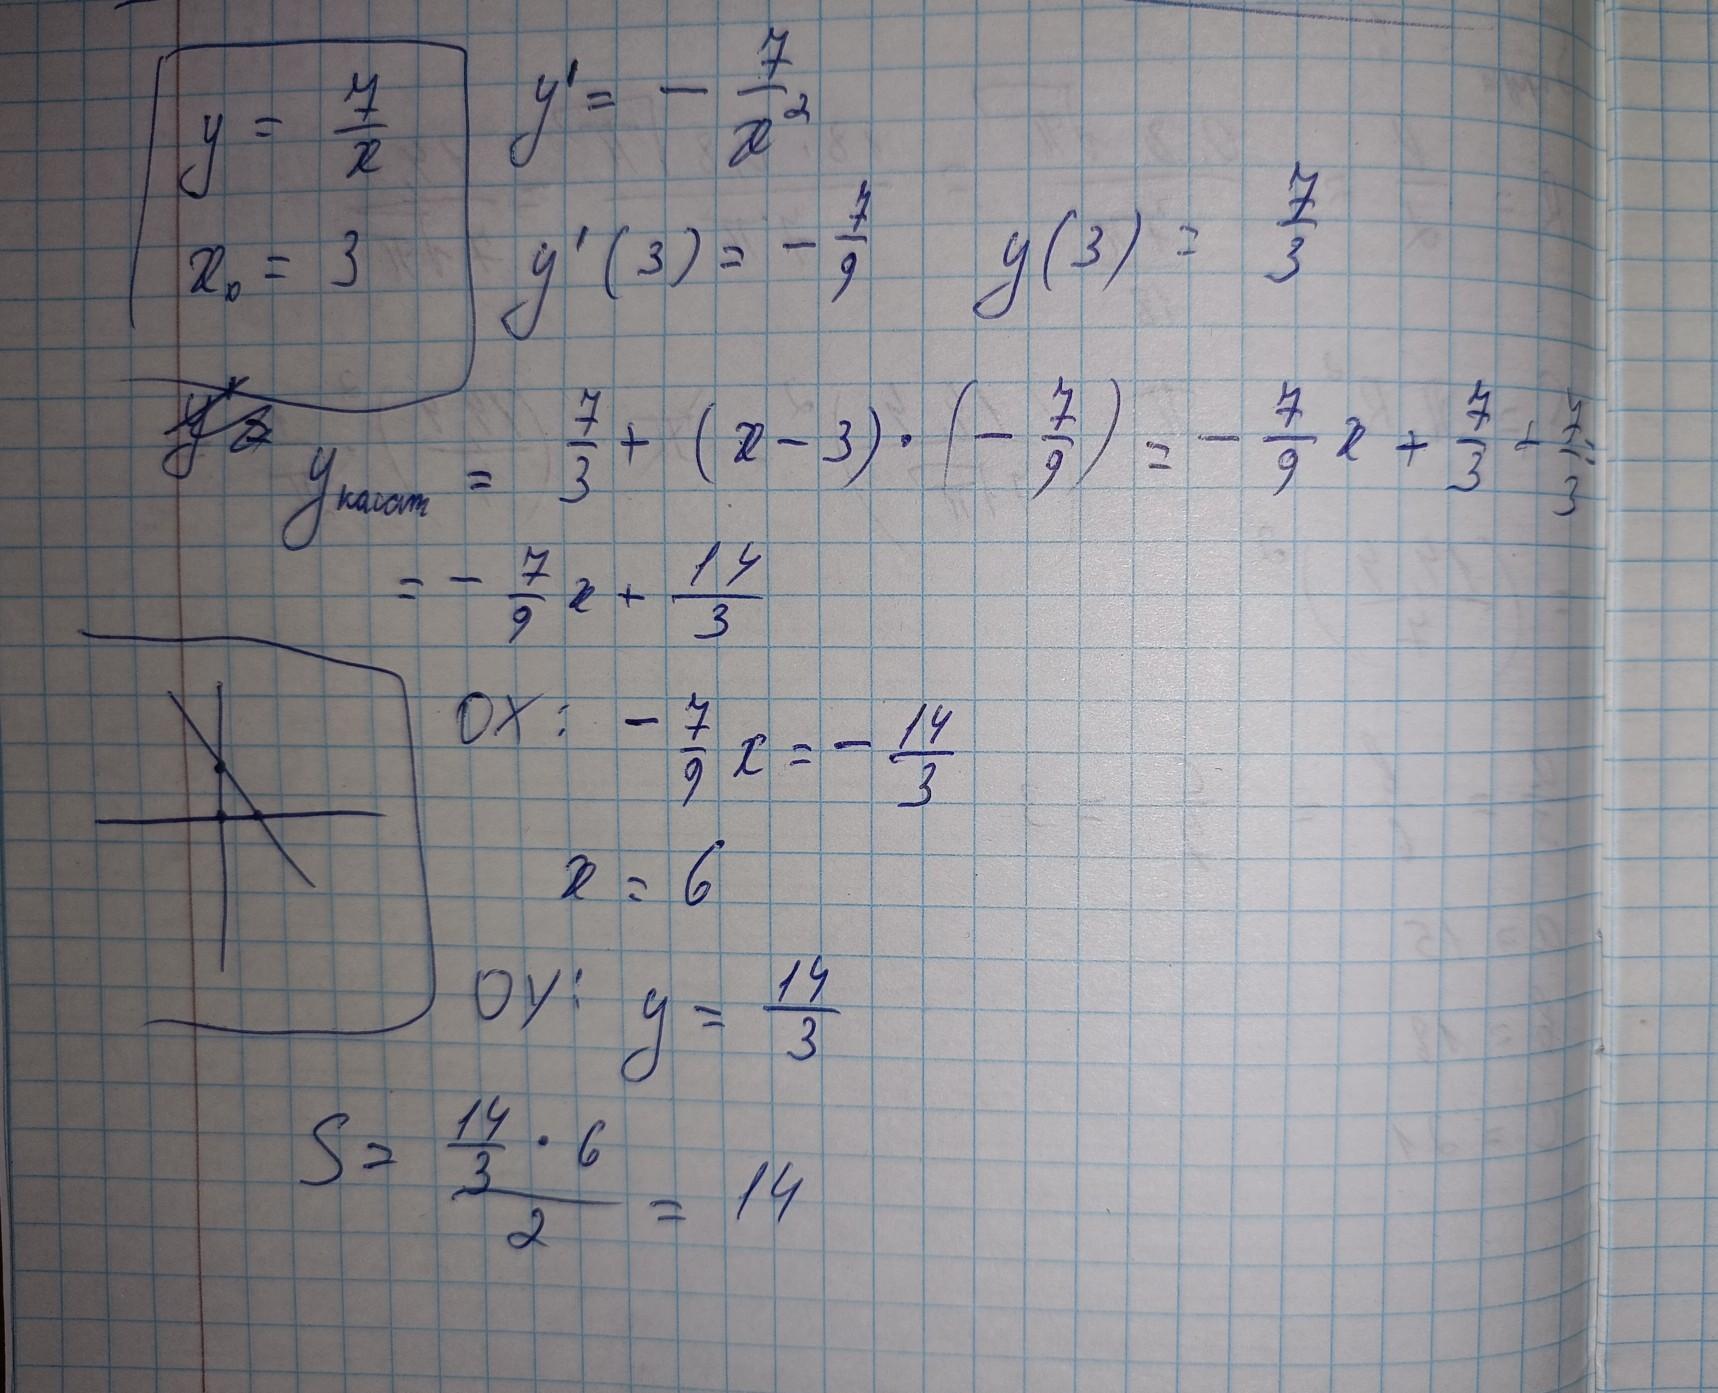 y = 7/x
x₀ = 3
y' = - 7/x²
y'(3) = - 7/9 y(3) = 7/3
y касат = 7/3 + (x - 3) · (- 7/9) = - 7/9 x + 7/3 + 7/3 =
= - 7/9 x + 14/3
OX: - 7/9 x = - 14/3
x = 6
OY: y = 14/3
S = (14/3 · 6)/2 = 14